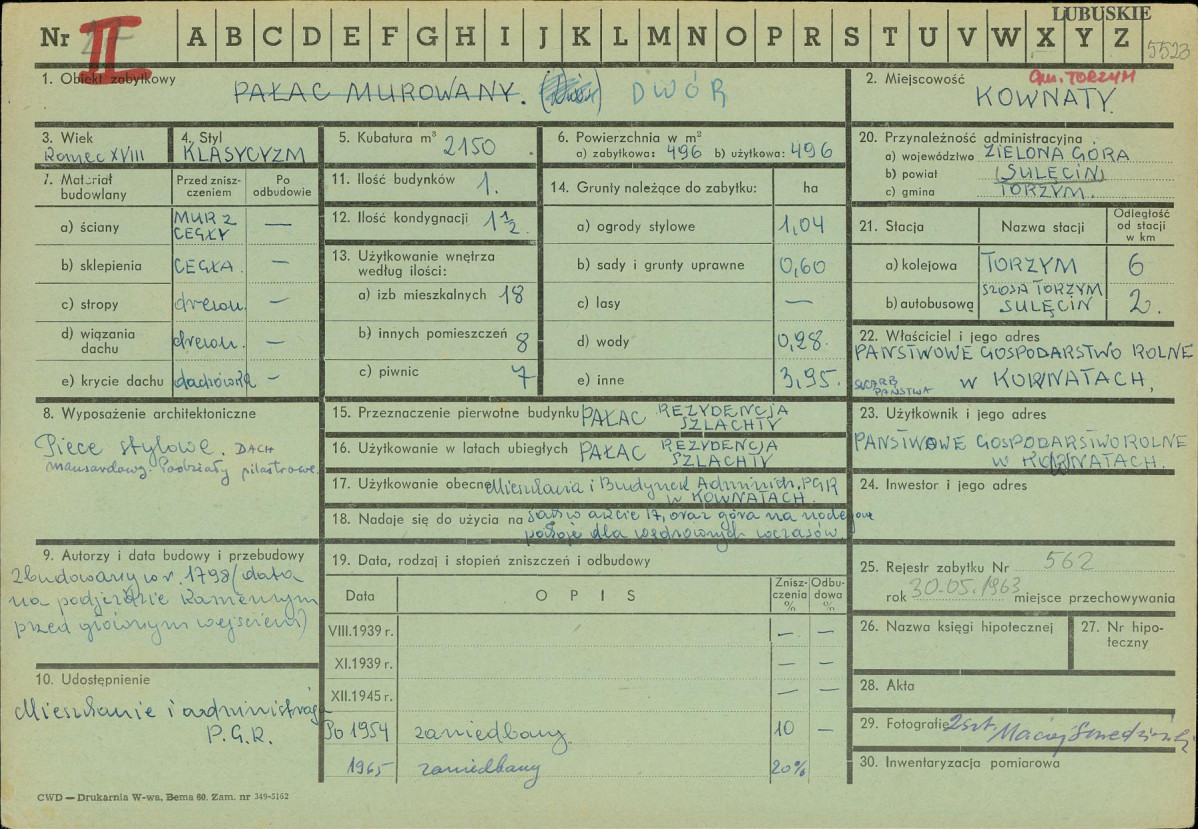 LUBUSKIE
Nr II A B C D E F G H I J K L M N O P R S T U V W X Y Z 5523
1. Obiekt zabytkowy
PAŁAC MUROWANY. DWÓR
2. Miejscowość
gm. TORZYM
KOWNATY
3. Wiek
Koniec XVIII
4. Styl
KLASYCYZM
5. Kubatura m³ 2150
6. Powierzchnia w m²
a) zabytkowa: 496 b) użytkowa: 496
20. Przynależność administracyjna
a) województwo ZIELONA GÓRA
b) powiat (SULĘCIN)
c) gmina TORZYM
7. Materiał budowlany
Przed zniszczeniem
Po odbudowie
a) ściany MUR Z CEGŁY —
b) sklepienia CEGŁA. —
c) stropy drewn. —
d) wiązania dachu drewn. —
e) krycie dachu dachówka —
11. Ilość budynków 1.
12. Ilość kondygnacji 1½.
13. Użytkowanie wnętrza według ilości:
a) izb mieszkalnych 18
b) innych pomieszczeń 8
c) piwnic 7
14. Grunty należące do zabytku: ha
a) ogrody stylowe 1,04
b) sady i grunty uprawne 0,60
c) lasy —
d) wody 0,28.
e) inne 3,95.
21. Stacja
Nazwa stacji
Odległość od stacji w km
a) kolejowa TORZYM 6
b) autobusowa SZOSA TORZYM SULĘCIN 2.
22. Właściciel i jego adres
PAŃSTWOWE GOSPODARSTWO ROLNE
SKARB PAŃSTWA
W KOWNATACH,
8. Wyposażenie architektoniczne
Piece stylowe. DACH
mansardowy. Podziały pilastrowe.
15. Przeznaczenie pierwotne budynku PAŁAC REZYDENCJA SZLACHTY
16. Użytkowanie w latach ubiegłych PAŁAC REZYDENCJA SZLACHTY
17. Użytkowanie obecne Mieszkania i Budynek Administr. PGR
W KOWNATACH.
18. Nadaje się do użycia na jak w akcie 17, oraz góra na
pokoje dla wędrownych wczasów
23. Użytkownik i jego adres
PAŃSTWOWE GOSPODARSTWO ROLNE
W KOWNATACH.
24. Inwestor i jego adres
9. Autorzy i data budowy i przebudowy
Zbudowany w r. 1798 (data
na podjeździe kamiennym
przed głównym wejściem)
19. Data, rodzaj i stopień zniszczeń i odbudowy
Data
OPIS
Zniszczenia %
Odbudowa %
VIII.1939 r. — —
XI.1939 r. — —
XII.1945 r. — —
Po 1954 zaniedbany. 10 —
1965 zaniedbany 20%
25. Rejestr zabytku Nr 562
rok 30.05.1963 miejsce przechowywania
26. Nazwa księgi hipotecznej
27. Nr hipoteczny
28. Akta
29. Fotografie 2 szt. Maciej
30. Inwentaryzacja pomiarowa
10. Udostępnienie
Mieszkanie i administracja
P.G.R.
CWD — Drukarnia W-wa, Bema 60. Zam. nr 349-5162